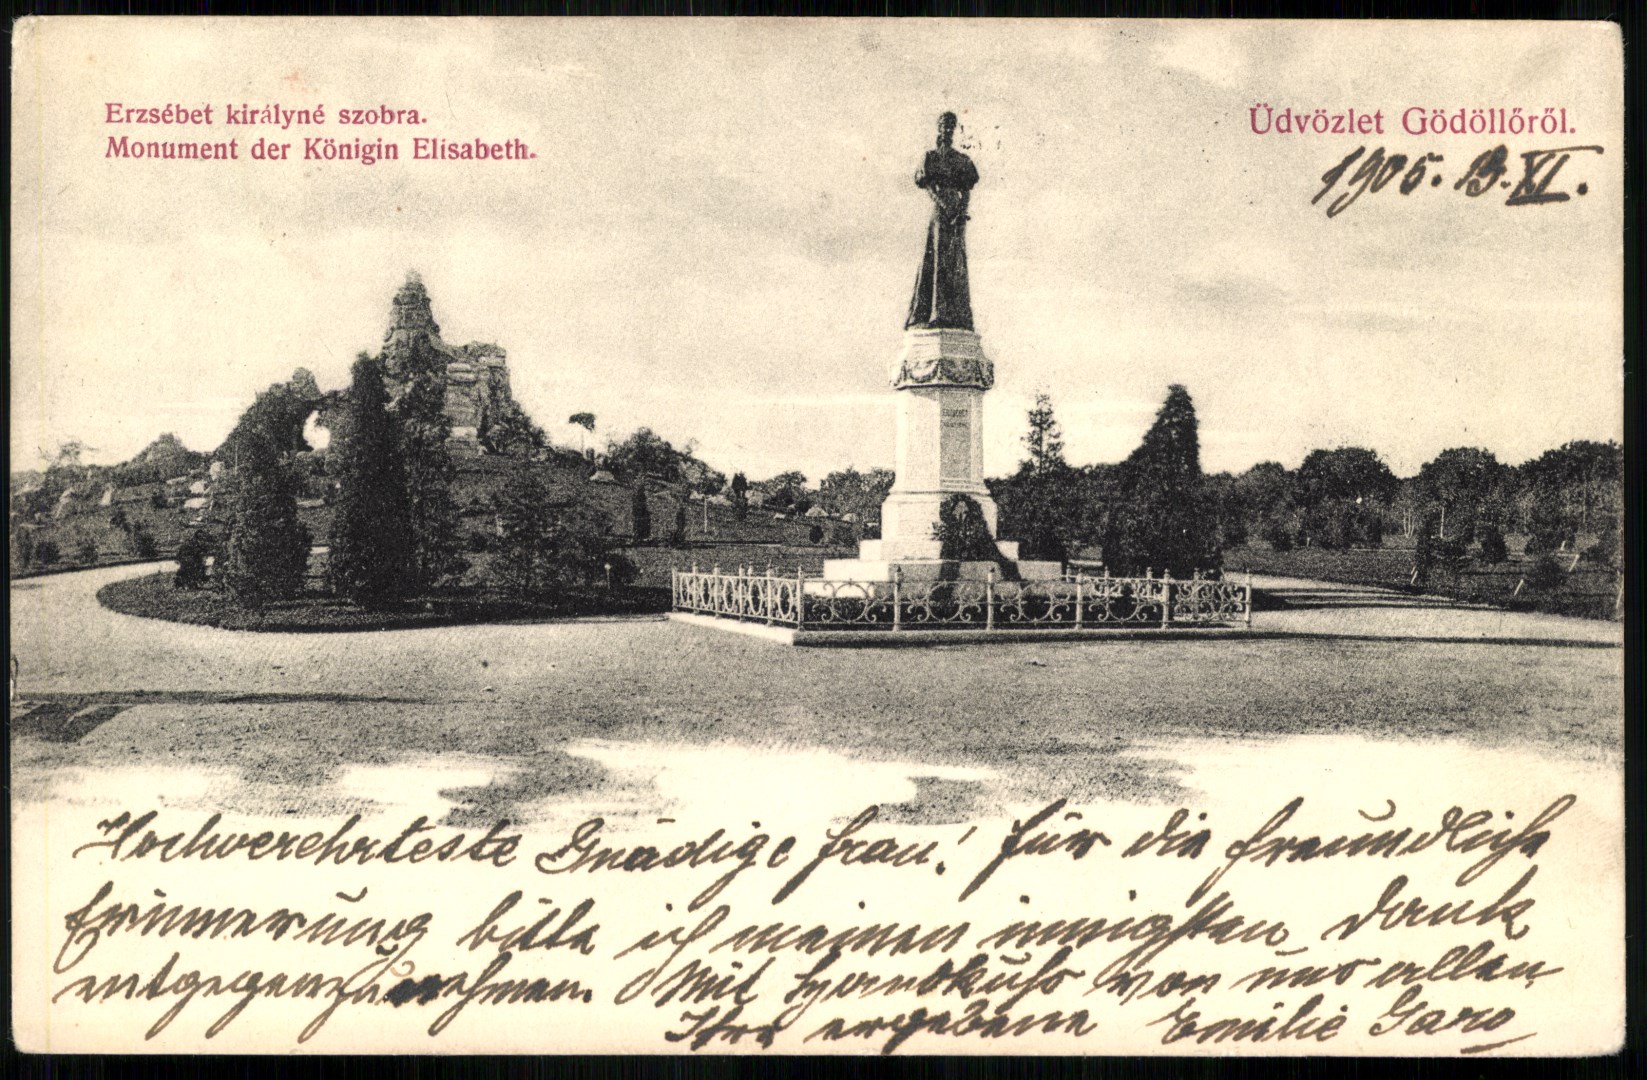 Erzsébet királyné szobra.
Monument der Königin Elisabeth.
Üdvözlet Gödöllőről.
1905. 19. XI.
Hochverehrteste Gnädige frau! für die freundliche
Erinnerung bitte ich meinen innigsten Dank
entgegenzunehmen. Mit Handkuß von uns allen
Ihre ergebene Emilie